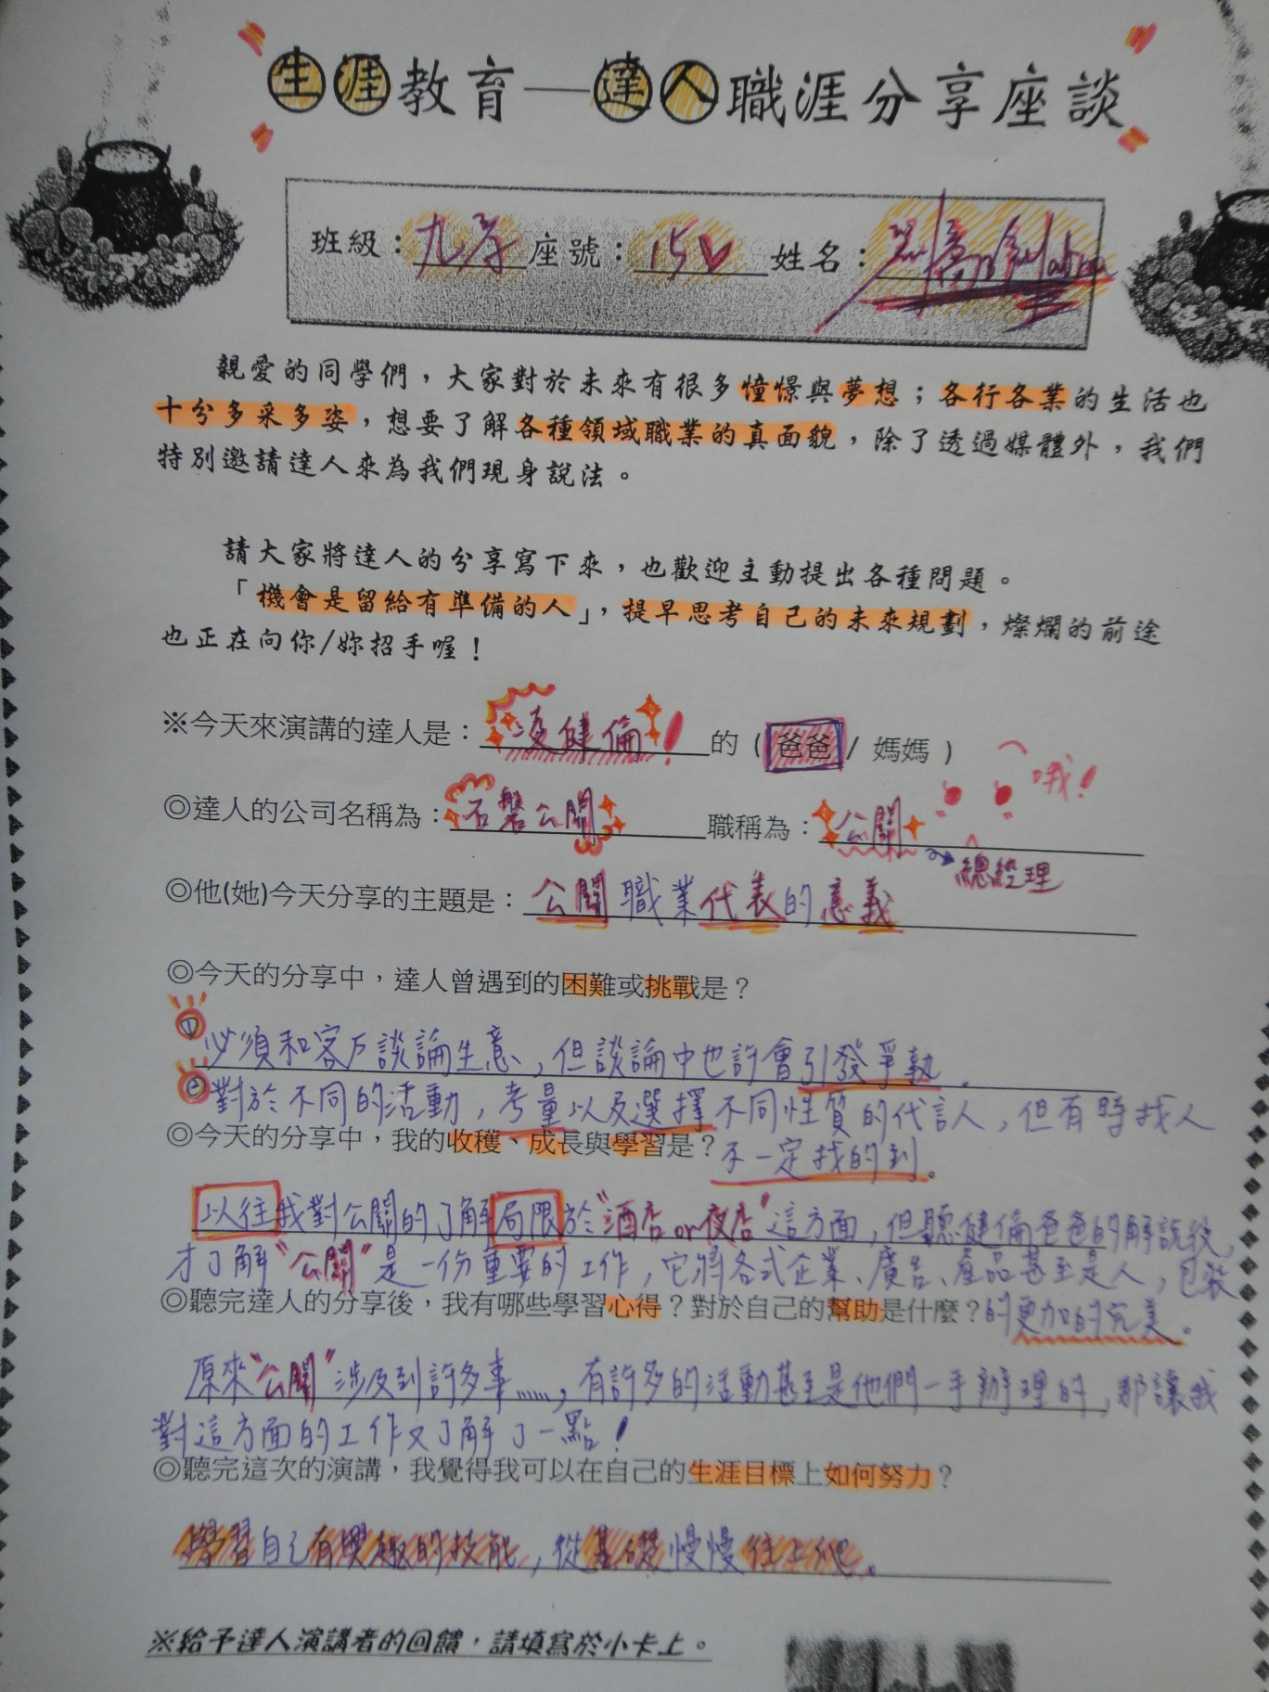 生涯教育——達人職涯分享座談
班級：九孝 座號：15 姓名：
親愛的同學們，大家對於未來有很多憧憬與夢想；各行各業的生活也
十分多采多姿，想要了解各種領域職業的真面貌，除了透過媒體外，我們
特別邀請達人來為我們現身說法。
請大家將達人的分享寫下來，也歡迎主動提出各種問題。
「機會是留給有準備的人」，提早思考自己的未來規劃，燦爛的前途
也正在向你/妳招手喔！
※今天來演講的達人是：凌健倫！的（爸爸/ 媽媽）
哦！
◎達人的公司名稱為：石磐公關 職稱為：公關
總經理
◎他(她)今天分享的主題是：公關職業代表的意義
◎今天的分享中，達人曾遇到的困難或挑戰是？
① 必須和客戶談論生意，但談論中也許會引發爭執。
② 對於不同的活動，考量以及選擇不同性質的代言人，但有時找人
◎今天的分享中，我的收穫、成長與學習是？不一定找的到。
以往我對公關的了解局限於"酒店or夜店"這方面，但聽健倫爸爸的解說後，
才了解"公關"是一份重要的工作，它將各式企業、廣告、產品甚至是人，包裝
◎聽完達人的分享後，我有哪些學習心得？對於自己的幫助是什麼？的更加的完美。
原來"公關"涉及到許多事……，有許多的活動甚至是他們一手辦理的，那讓我
對這方面的工作又了解了一點！
◎聽完這次的演講，我覺得我可以在自己的生涯目標上如何努力？
學習自己有興趣的技能，從基礎慢慢往上爬。
※給予達人演講者的回饋，請填寫於小卡上。